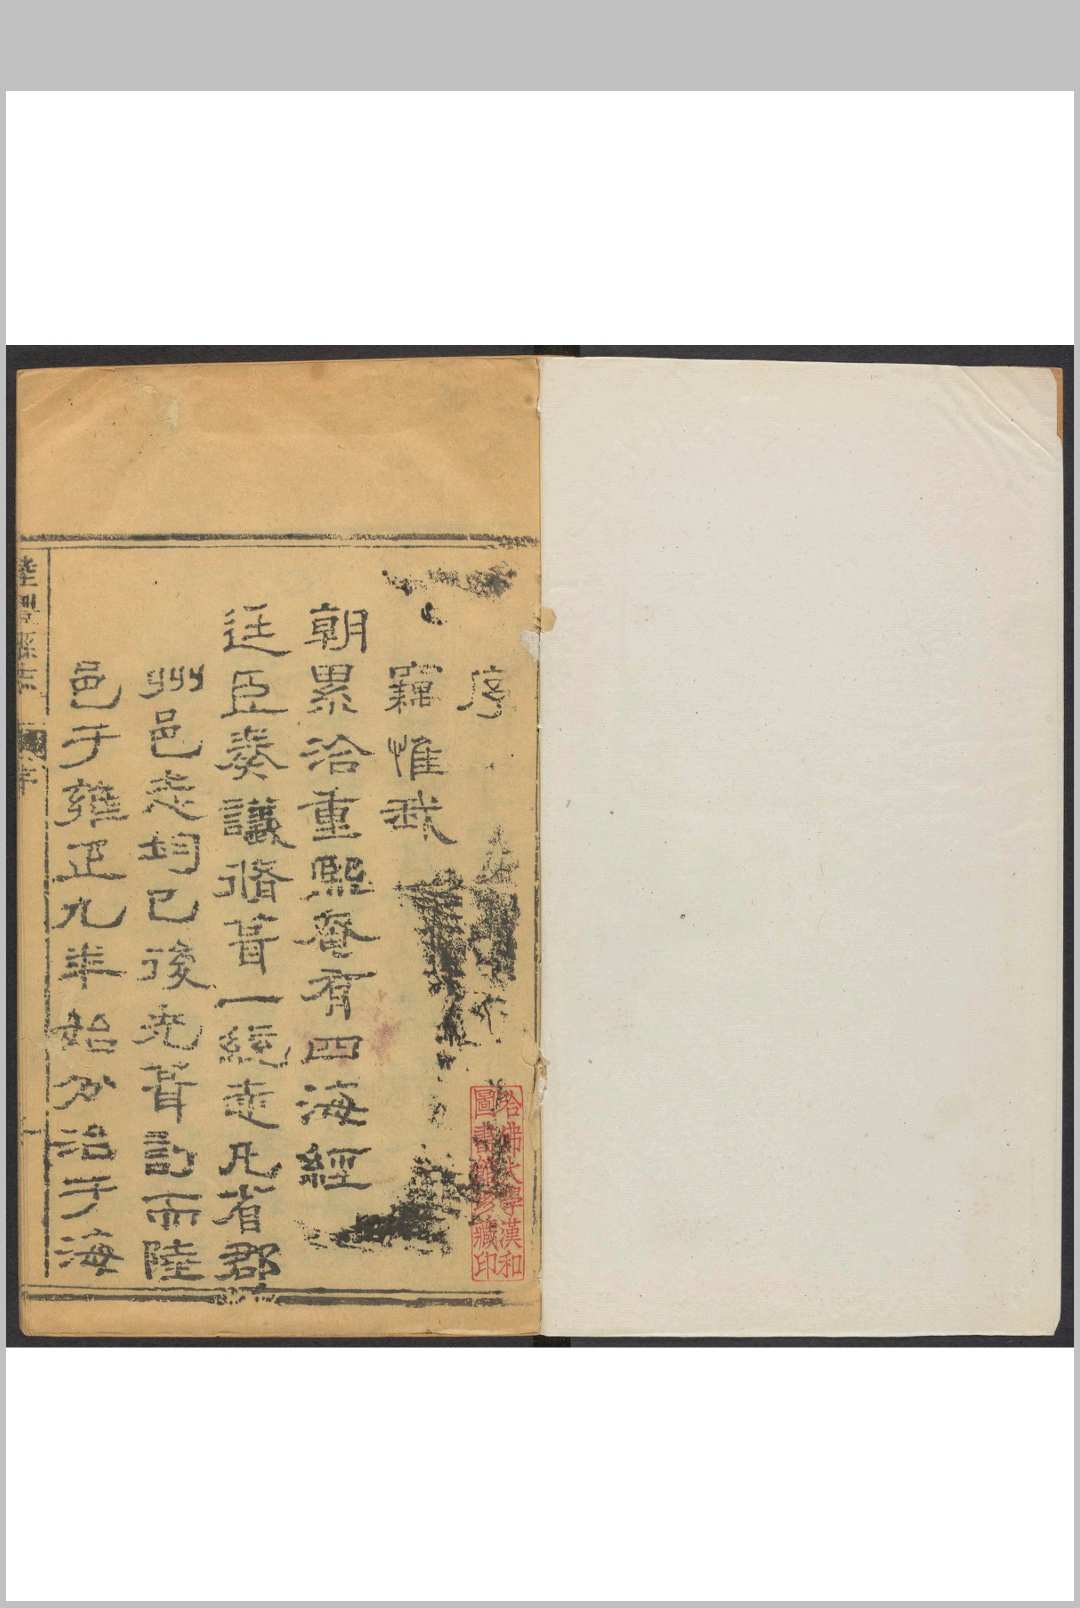 序
竊惟我
朝累洽重熙奄有四海經
廷臣奏議脩葺一統志凡省郡
州邑志均已後先葺訂而陸
邑于雍正九年始分治于海
陸豐縣志
序
一
哈佛大學漢和
圖書館珍藏印